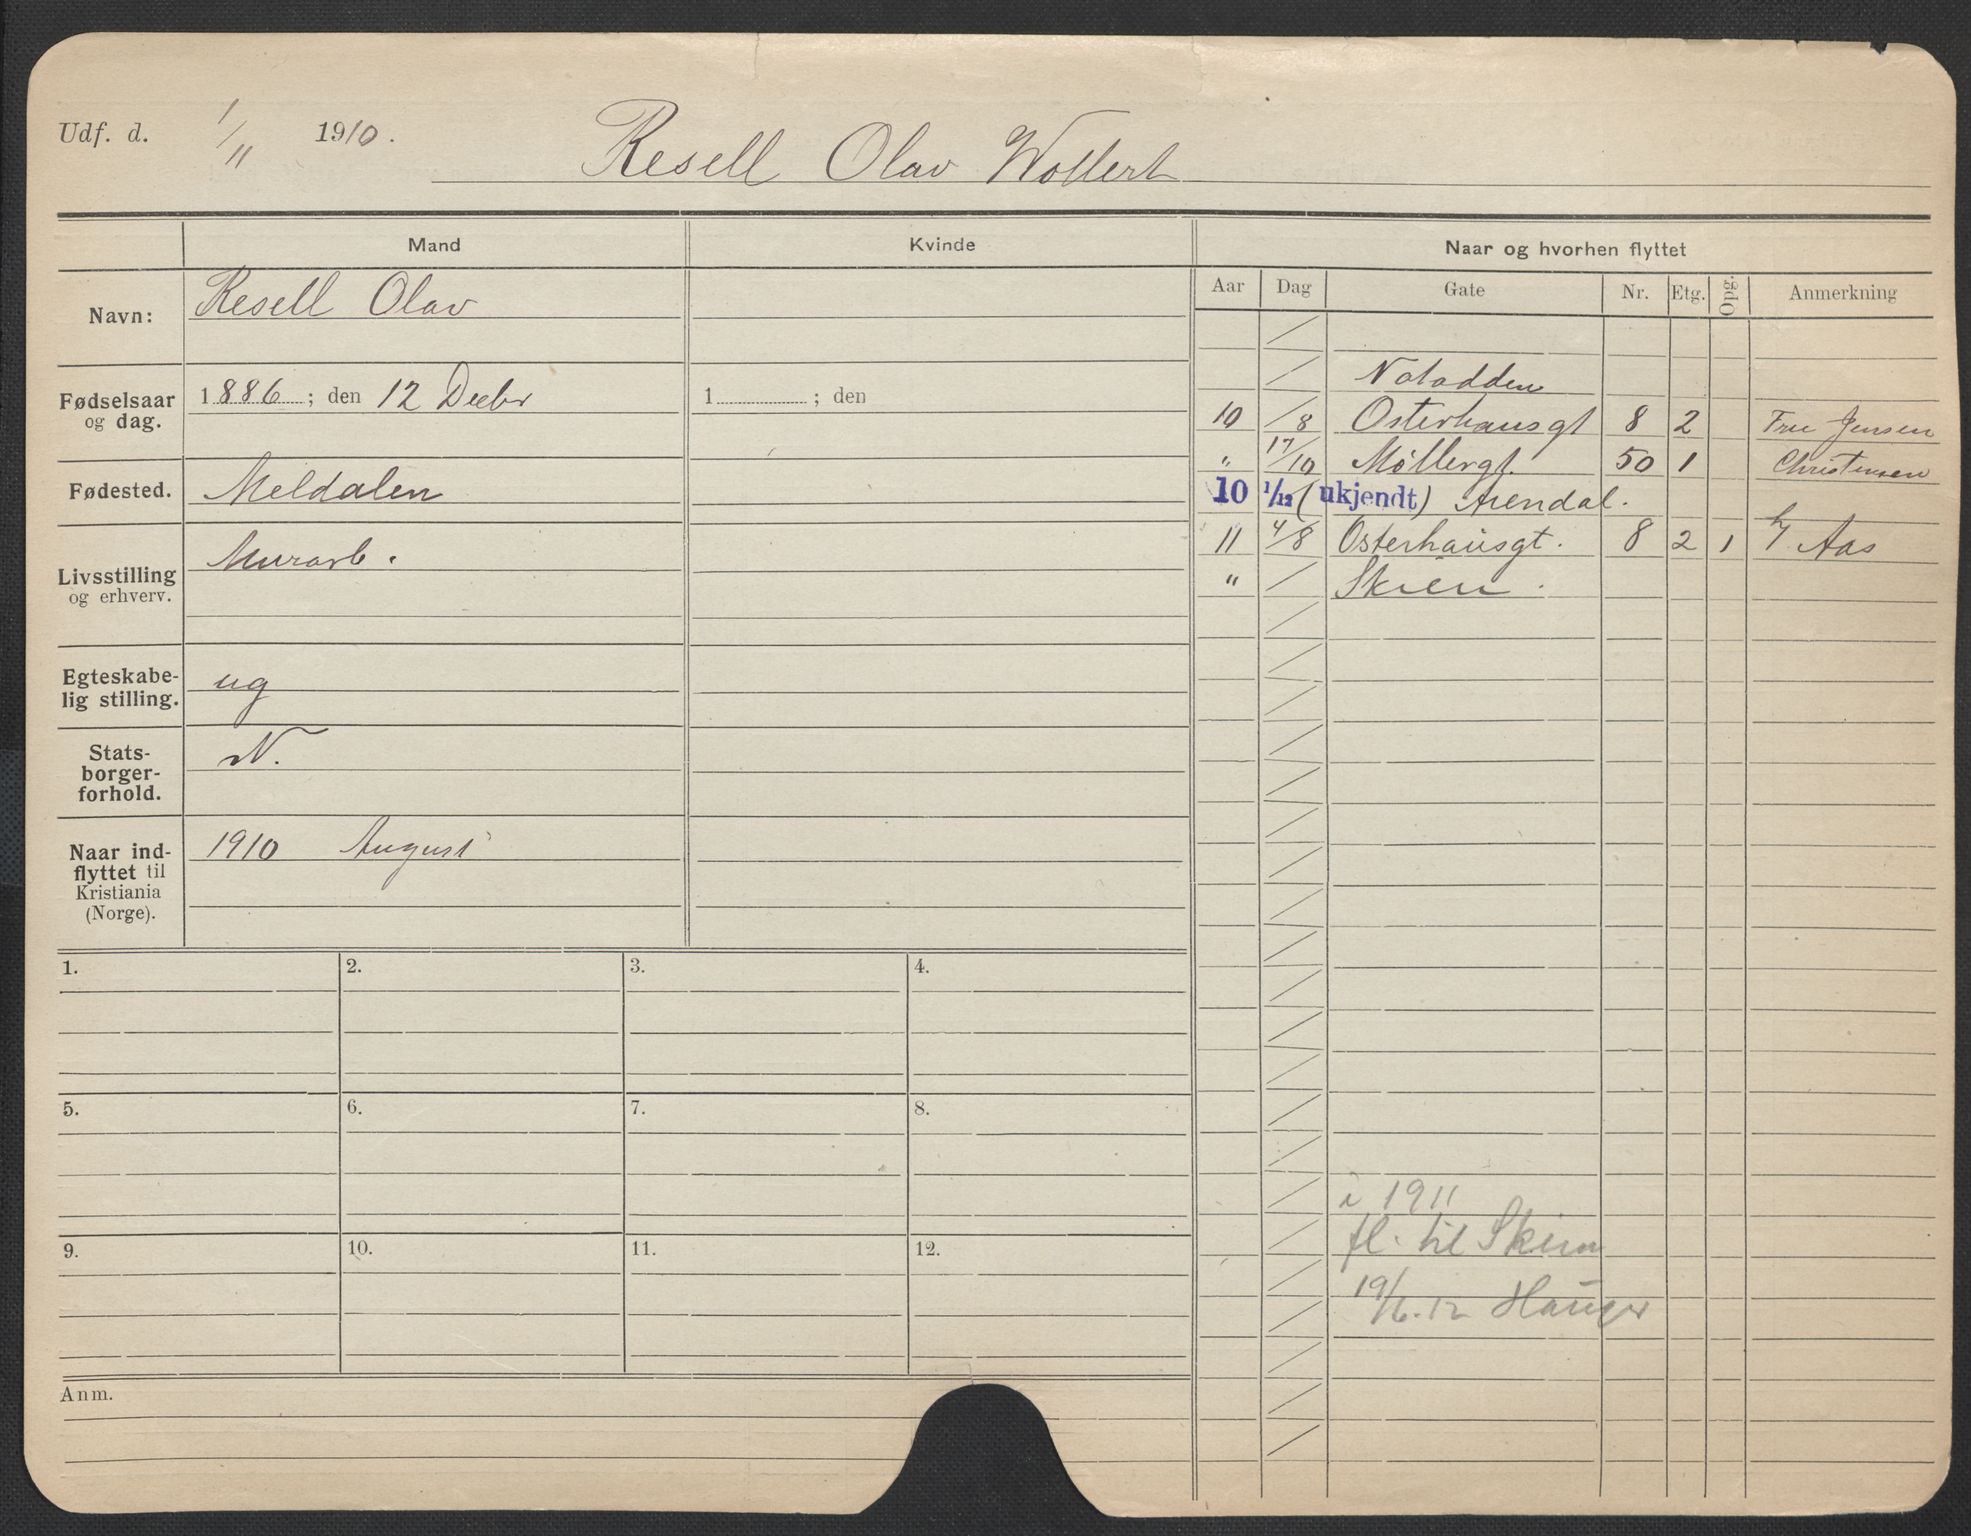 Udf. d. 1/11 1910. Resell Olav Wollert
Mand Kvinde Naar og hvorhen flyttet
Aar Dag Gate Nr. Etg. Opg. Anmerkning
Navn: Resell Olav
Notodden
Fødselsaar og dag. 1886; den 12 Decbr 1 ; den
10 /8 Osterhausgt 8 2 Fru Jensen
" 17/10 Møllergt. 50 1 Christensen
Fødested. Meldalen
10 1/12 (ukjendt) Arendal.
11 4/8 Osterhausgt. 8 2 1 Aas
" / Skien.
Livsstilling og erhverv. Murarb.
Egteskabe-
lig stilling. ug
Stats-
borger-
forhold. N.
Naar ind-
flyttet til
Kristiania
(Norge). 1910 August
1. 2. 3. 4.
5. 6. 7. 8.
i 1911
fl. til Skien
9. 10. 11. 12.
19/6.12 Hauger
Anm.